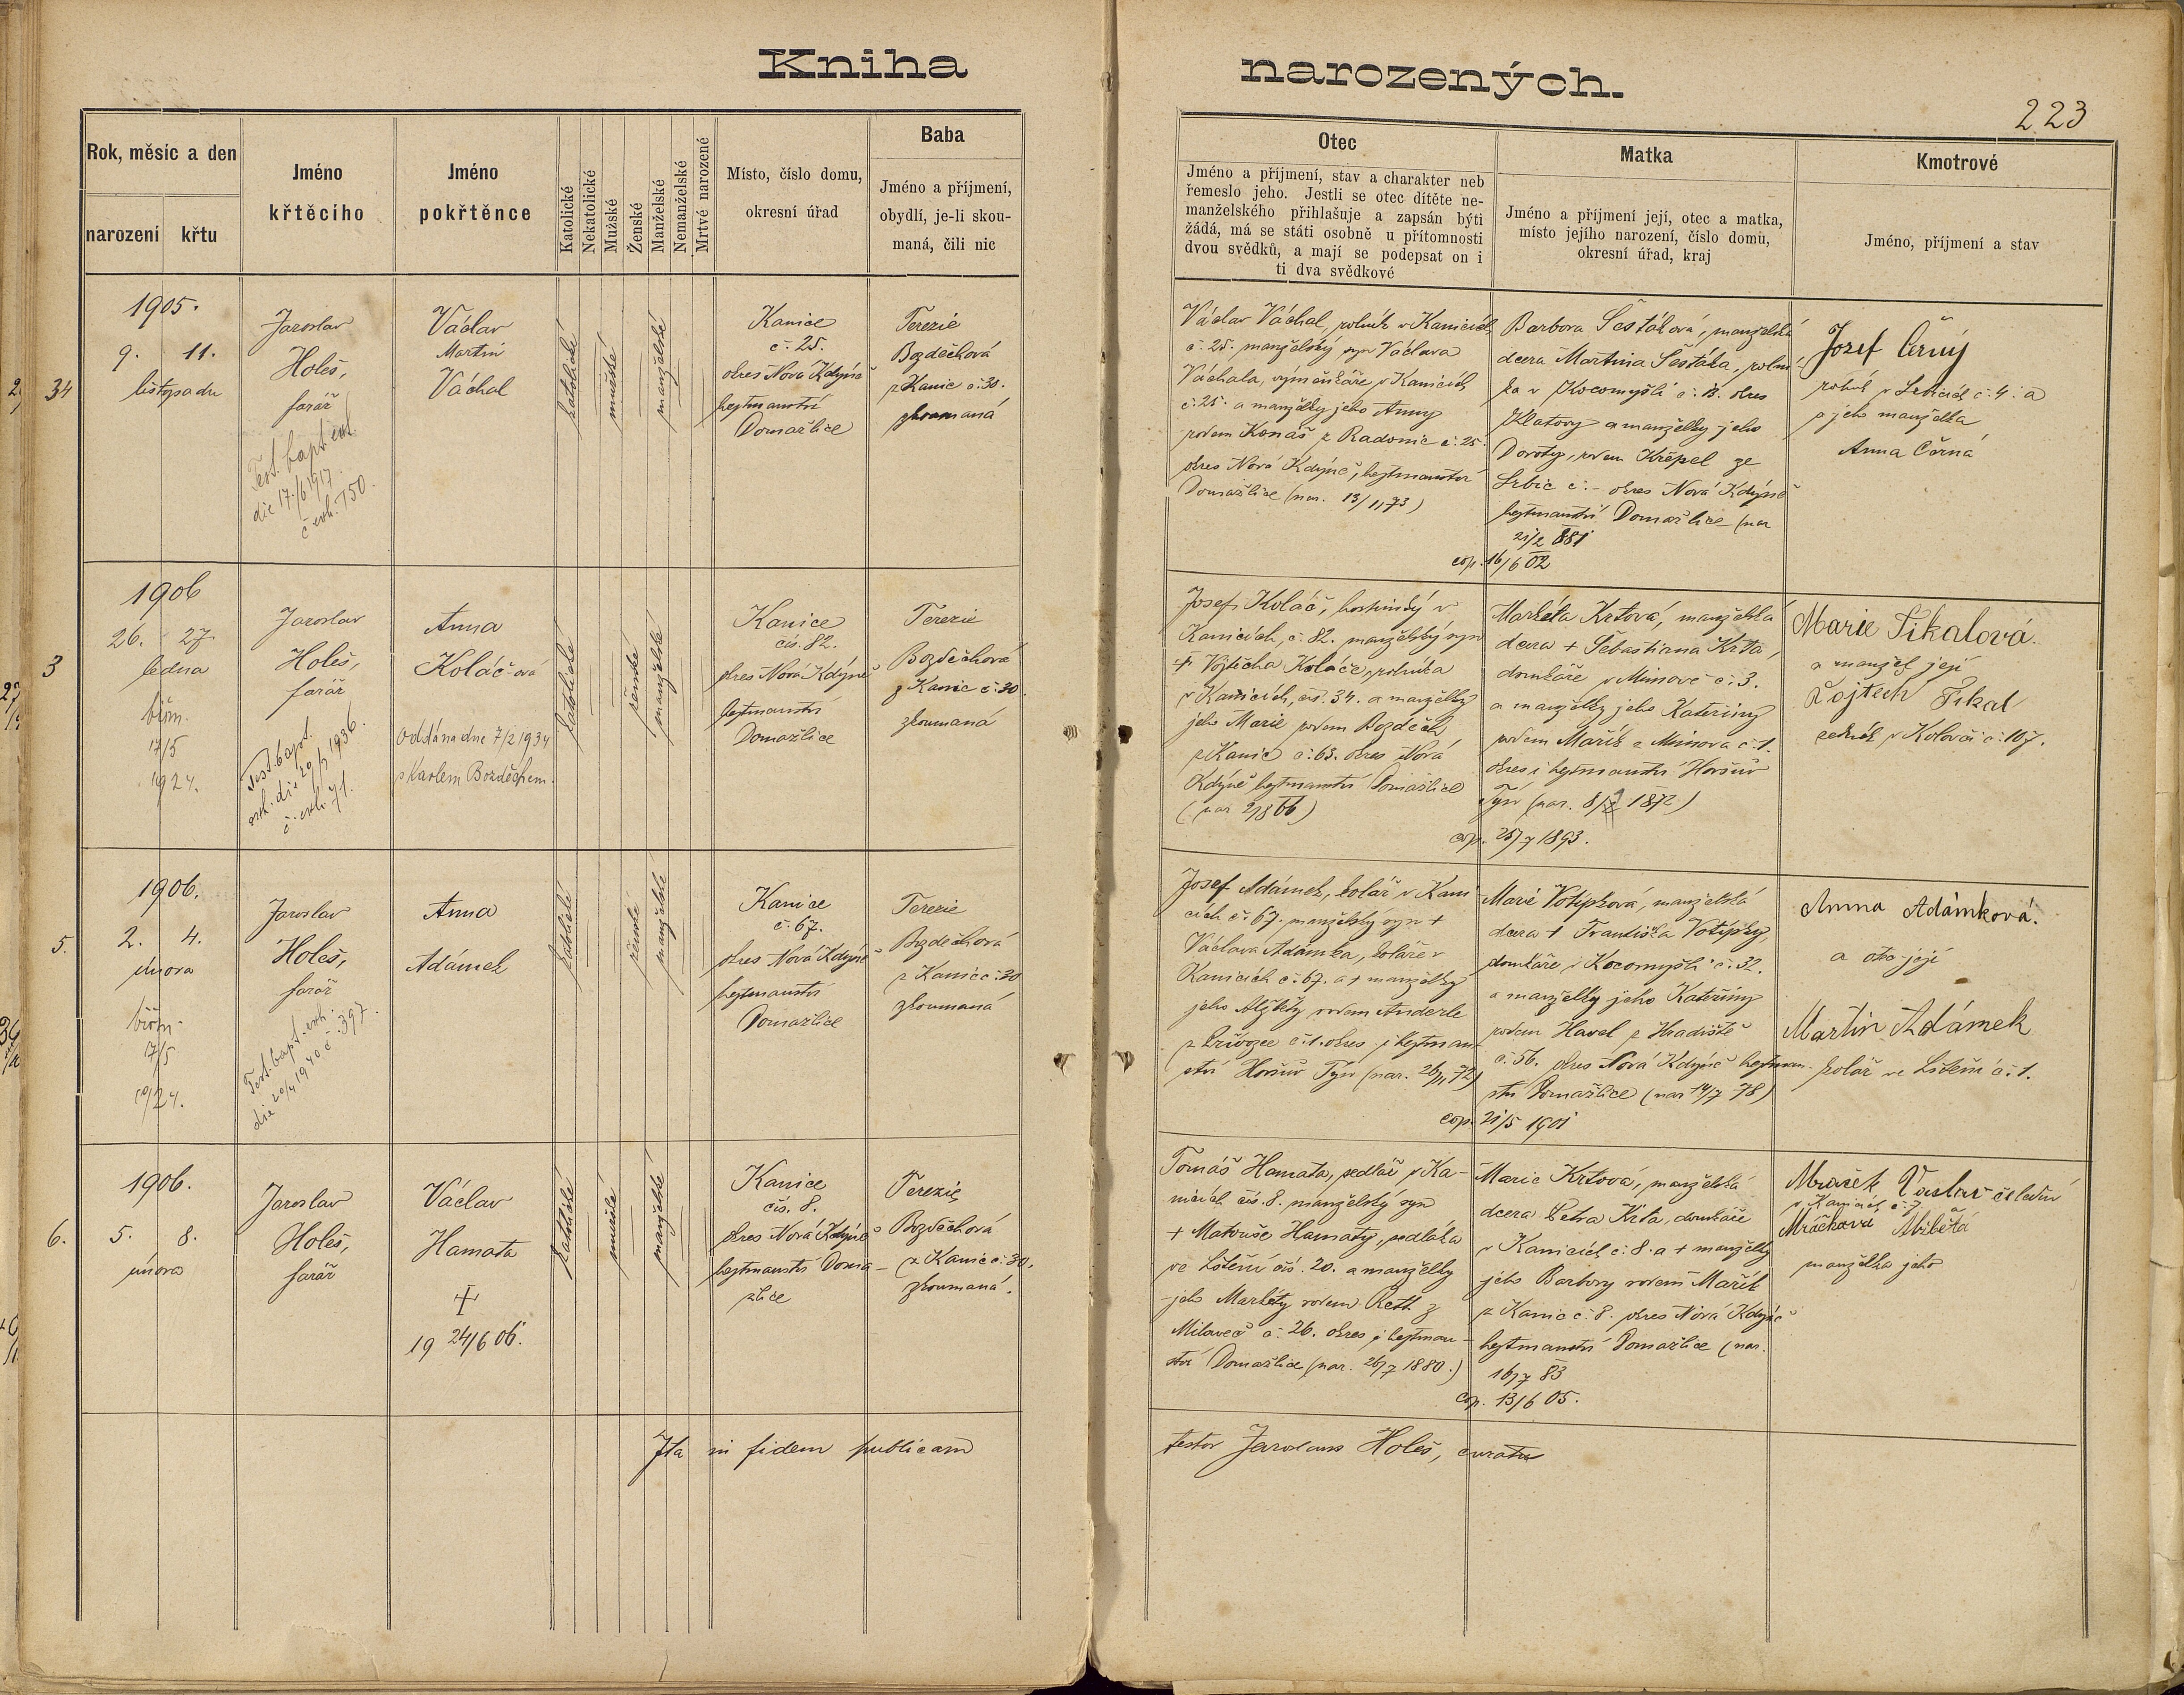 Kniha narozených.
223
Rok, měsíc a den
narození
křtu
Jméno
křtěcího
Jméno
pokřtěnce
Katolické
Nekatolické
Mužské
Ženské
Manželské
Nemanželské
Mrtvé narozené
Místo, číslo domu,
okresní úřad
Baba
Jméno a příjmení,
obydlí, je-li skou-
maná, čili nic
Otec
Jméno a příjmení, stav a charakter neb
řemeslo jeho. Jestli se otec dítěte ne-
manželského přihlašuje a zapsán býti
žádá, má se státi osobně u přítomnosti
dvou svědků, a mají se podepsat on i
ti dva svědkové
Matka
Jméno a příjmení její, otec a matka,
místo jejího narození, číslo domu,
okresní úřad, kraj
Kmotrové
Jméno, příjmení a stav
34
1905.
9. 11.
listopadu
Jaroslav
Holeš,
farář
Test. bapt. ext.
die 17./6 1917.
č. exh. 150.
Václav
Martin
Váchal
katolické
mužské
manželské
Kanice
č. 25.
okres Nová Kdýně
hejtmanství
Domažlice
Terezie
Bozděchová
z Kanic č. 30.
zkoumaná
Václav Váchal, rolník v Kanicích
č. 25. manželský syn Václava
Váchala, výměnkáře v Kanicích
č. 25. a manželky jeho Anny
rodem Konáš z Radonic č. 25.
okres Nová Kdýně, hejtmanství
Domažlice (nar. 13/1, 73)
Barbora Šestáková, manželská
dcera Martina Šestáka, rolní-
ka v Kocomyšli č. 13. okres
Klatovy a manželky jeho
Doroty, rodem Krépel ze
Srbic č. - okres Nová Kdýně
hejtmanství Domažlice (nar
21/2 881
cop. 16/6 02
Josef Černý
rolník v Srbicích č. 4. a
a jeho manželka
Anna Černá
3
1906
26. 27.
ledna
biřm.
17/5
1924.
Jaroslav
Holeš,
farář
Test. bapt.
exh. die 20/2 1936.
č. exh. 71.
Anna
Koláč-ová
Oddána dne 7/2 1934
s Karlem Bozděchem.
katolické
ženské
manželské
Kanice
čís. 82.
okres Nová Kdýně
hejtmanství
Domažlice
Terezie
Bozděchová
z Kanic č. 30.
zkoumaná
Josef Koláč, hostinský v
Kanicích, č. 82. manželský syn
+ Vojtěcha Koláče, rolníka
v Kanicích, čís. 34. a manželky
jeho Marie rodem Bozděch
z Kanic č. 63. okres Nová
Kdýně hejtmanství Domažlice
(nar 2/8 66)
Markéta Krtová, manželská
dcera + Šebastiana Krta,
domkáře v Mimově č. 3.
a manželky jeho Kateřiny
rodem Mařík z Mimova č. 1.
okres i hejtmanství Horšův
Týn (nar. 8/2 1872)
cop. 25/7 1893.
Marie Sikalová.
a manžel její
Vojtěch Sikal
sedlák v Kolovči č. 107.
5.
1906.
2. 4.
února
biřm.
17/5
1924.
Jaroslav
Holeš,
farář
Test. bapt. exh.
die 20/4 1940 č. 397.
Anna
Adámek
katolické
ženské
manželské
Kanice
č. 67.
okres Nová Kdýně
hejtmanství
Domažlice
Terezie
Bozděchová
z Kanic č. 30
zkoumaná
Josef Adámek, kolář v Kani-
cích č. 67. manželský syn +
Václava Adámka, koláře v
Kanicích č. 67. a + manželky
jeho Alžběty rodem Anderle
z Křivozec č. 1. okres i hejtman-
ství Horšův Týn (nar. 26/11 72)
Marie Votípková, manželská
dcera + Františka Votípky,
domkáře v Kocomyšli č. 32.
a manželky jeho Kateřiny
rodem Havel z Hradiště
č. 56. okres Nová Kdýně hejtman-
ství Domažlice (nar 14/7 78)
cop. 21/5 1901
Anna Adámková.
a otec její
Martin Adámek
kolář ve Lštění č. 1.
6.
1906.
5. 8.
února
Jaroslav
Holeš,
farář
Václav
Hamata
+
19 24/6 06.
katolické
mužské
manželské
Kanice
čís. 8.
okres Nová Kdýně
hejtmanství Doma-
žlice
Terezie
Bozděchová
z Kanic č. 30.
zkoumaná.
Tomáš Hamata, sedlář v Ka-
nicích čís. 8. manželský syn
+ Matouše Hamaty, sedláka
ve Lštění čís. 20. a manželky
jeho Markéty rodem Reth z
Milaveč č. 26. okres i hejtman-
ství Domažlice (nar. 26/7 1880.)
Marie Krtová, manželská
dcera Petra Krta, domkáře
v Kanicích č. 8. a + manželky
jeho Barbory rodem Mařík
z Kanic č. 8. okres Nová Kdýně
hejtmanství Domažlice (nar.
16/7 83
cop. 13/6 05.
Mraček Vaclav čeledín
v Kanicích č. 7. a
Mráčková Alžběta
manželka jeho
Ita in fidem publicam testor Jaroslaus Holeš, curatus